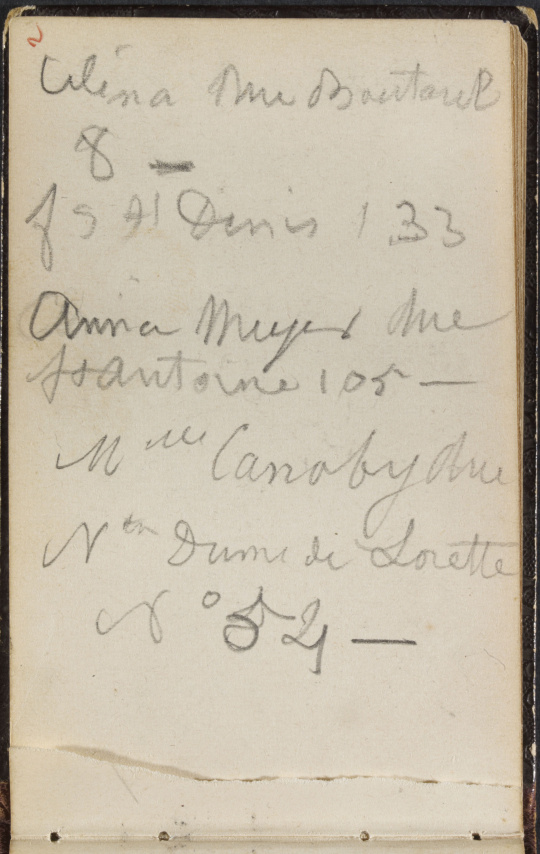 2
Celina Rue Boutarel
8 —
fg St Denis 133
Anna Meyer Rue
St antoine 105 —
Mlle Canoby Rue
Ntre Dame de Lorette
N° 54 —